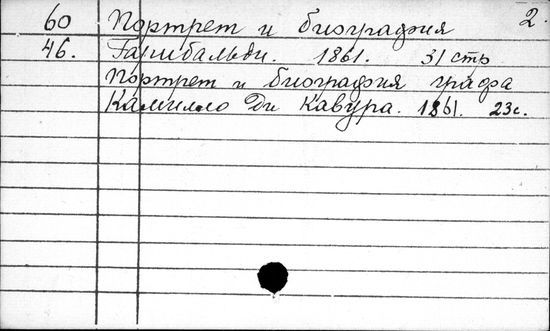 60 Портрет и биография 2.
46. Гарибальди. 1861. 31 стр
Портрет и биография графа
Камилло Ди Кавура. 1861. 23с.